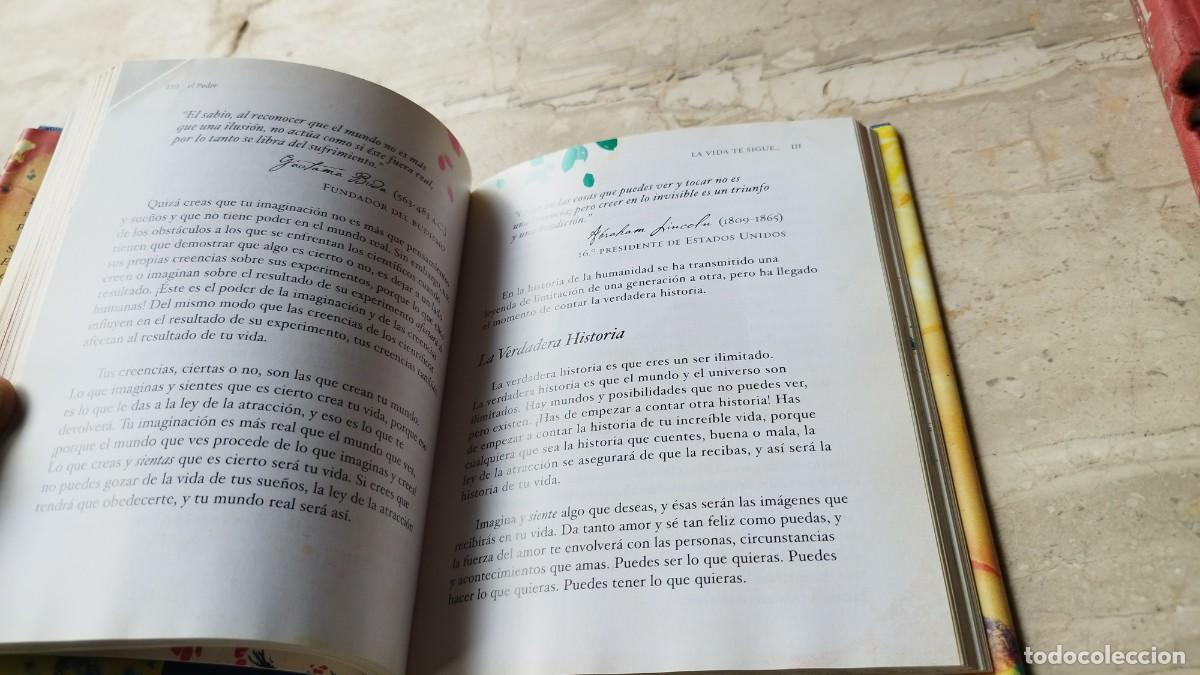 110 el Poder
"El sabio, al reconocer que el mundo no es más
que una ilusión, no actúa como si éste fuera real,
por lo tanto se libra del sufrimiento."
Gautama Buda (563-483 A.C.)
FUNDADOR DEL BUDISMO
Quizá creas que tu imaginación no es más que pensamientos
y sueños y que no tiene poder en el mundo real. Sin embargo,
de los obstáculos a los que se enfrentan los científicos cuando
tienen que demostrar que algo es cierto o no, es dejar a un
sus propias creencias sobre sus experimentos, porque lo que
creen o imaginan sobre el resultado de su experimento afectará al
resultado. ¡Éste es el poder de la imaginación y de las creencias
humanas! Del mismo modo que las creencias de los científicos
influyen en el resultado de su experimento, tus creencias también
afectan al resultado de tu vida.
Tus creencias, ciertas o no, son las que crean tu mundo.
Lo que imaginas y sientes que es cierto crea tu vida, porque eso
es lo que le das a la ley de la atracción, y eso es lo que te
devolverá. Tu imaginación es más real que el mundo que ves,
¡porque el mundo que ves procede de lo que imaginas y creas!
Lo que creas y sientas que es cierto será tu vida. Si crees que
no puedes gozar de la vida de tus sueños, la ley de la atracción
tendrá que obedecerte, y tu mundo real será así.
LA VIDA TE SIGUE... 111
en las cosas que puedes ver y tocar no es
una creencia; pero creer en lo invisible es un triunfo
y una bendición."
Abraham Lincoln (1809-1865)
16.º PRESIDENTE DE ESTADOS UNIDOS
En la historia de la humanidad se ha transmitido una
leyenda de limitación de una generación a otra, pero ha llegado
el momento de contar la verdadera historia.
La Verdadera Historia
La verdadera historia es que eres un ser ilimitado.
La verdadera historia es que el mundo y el universo son
ilimitados. Hay mundos y posibilidades que no puedes ver,
pero existen. ¡Has de empezar a contar otra historia! Has
de empezar a contar la historia de tu increíble vida, porque
cualquiera que sea la historia que cuentes, buena o mala, la
ley de la atracción se asegurará de que la recibas, y así será la
historia de tu vida.
Imagina y siente algo que deseas, y ésas serán las imágenes que
recibirás en tu vida. Da tanto amor y sé tan feliz como puedas, y
la fuerza del amor te envolverá con las personas, circunstancias
y acontecimientos que amas. Puedes ser lo que quieras. Puedes
hacer lo que quieras. Puedes tener lo que quieras.
todocoleccion